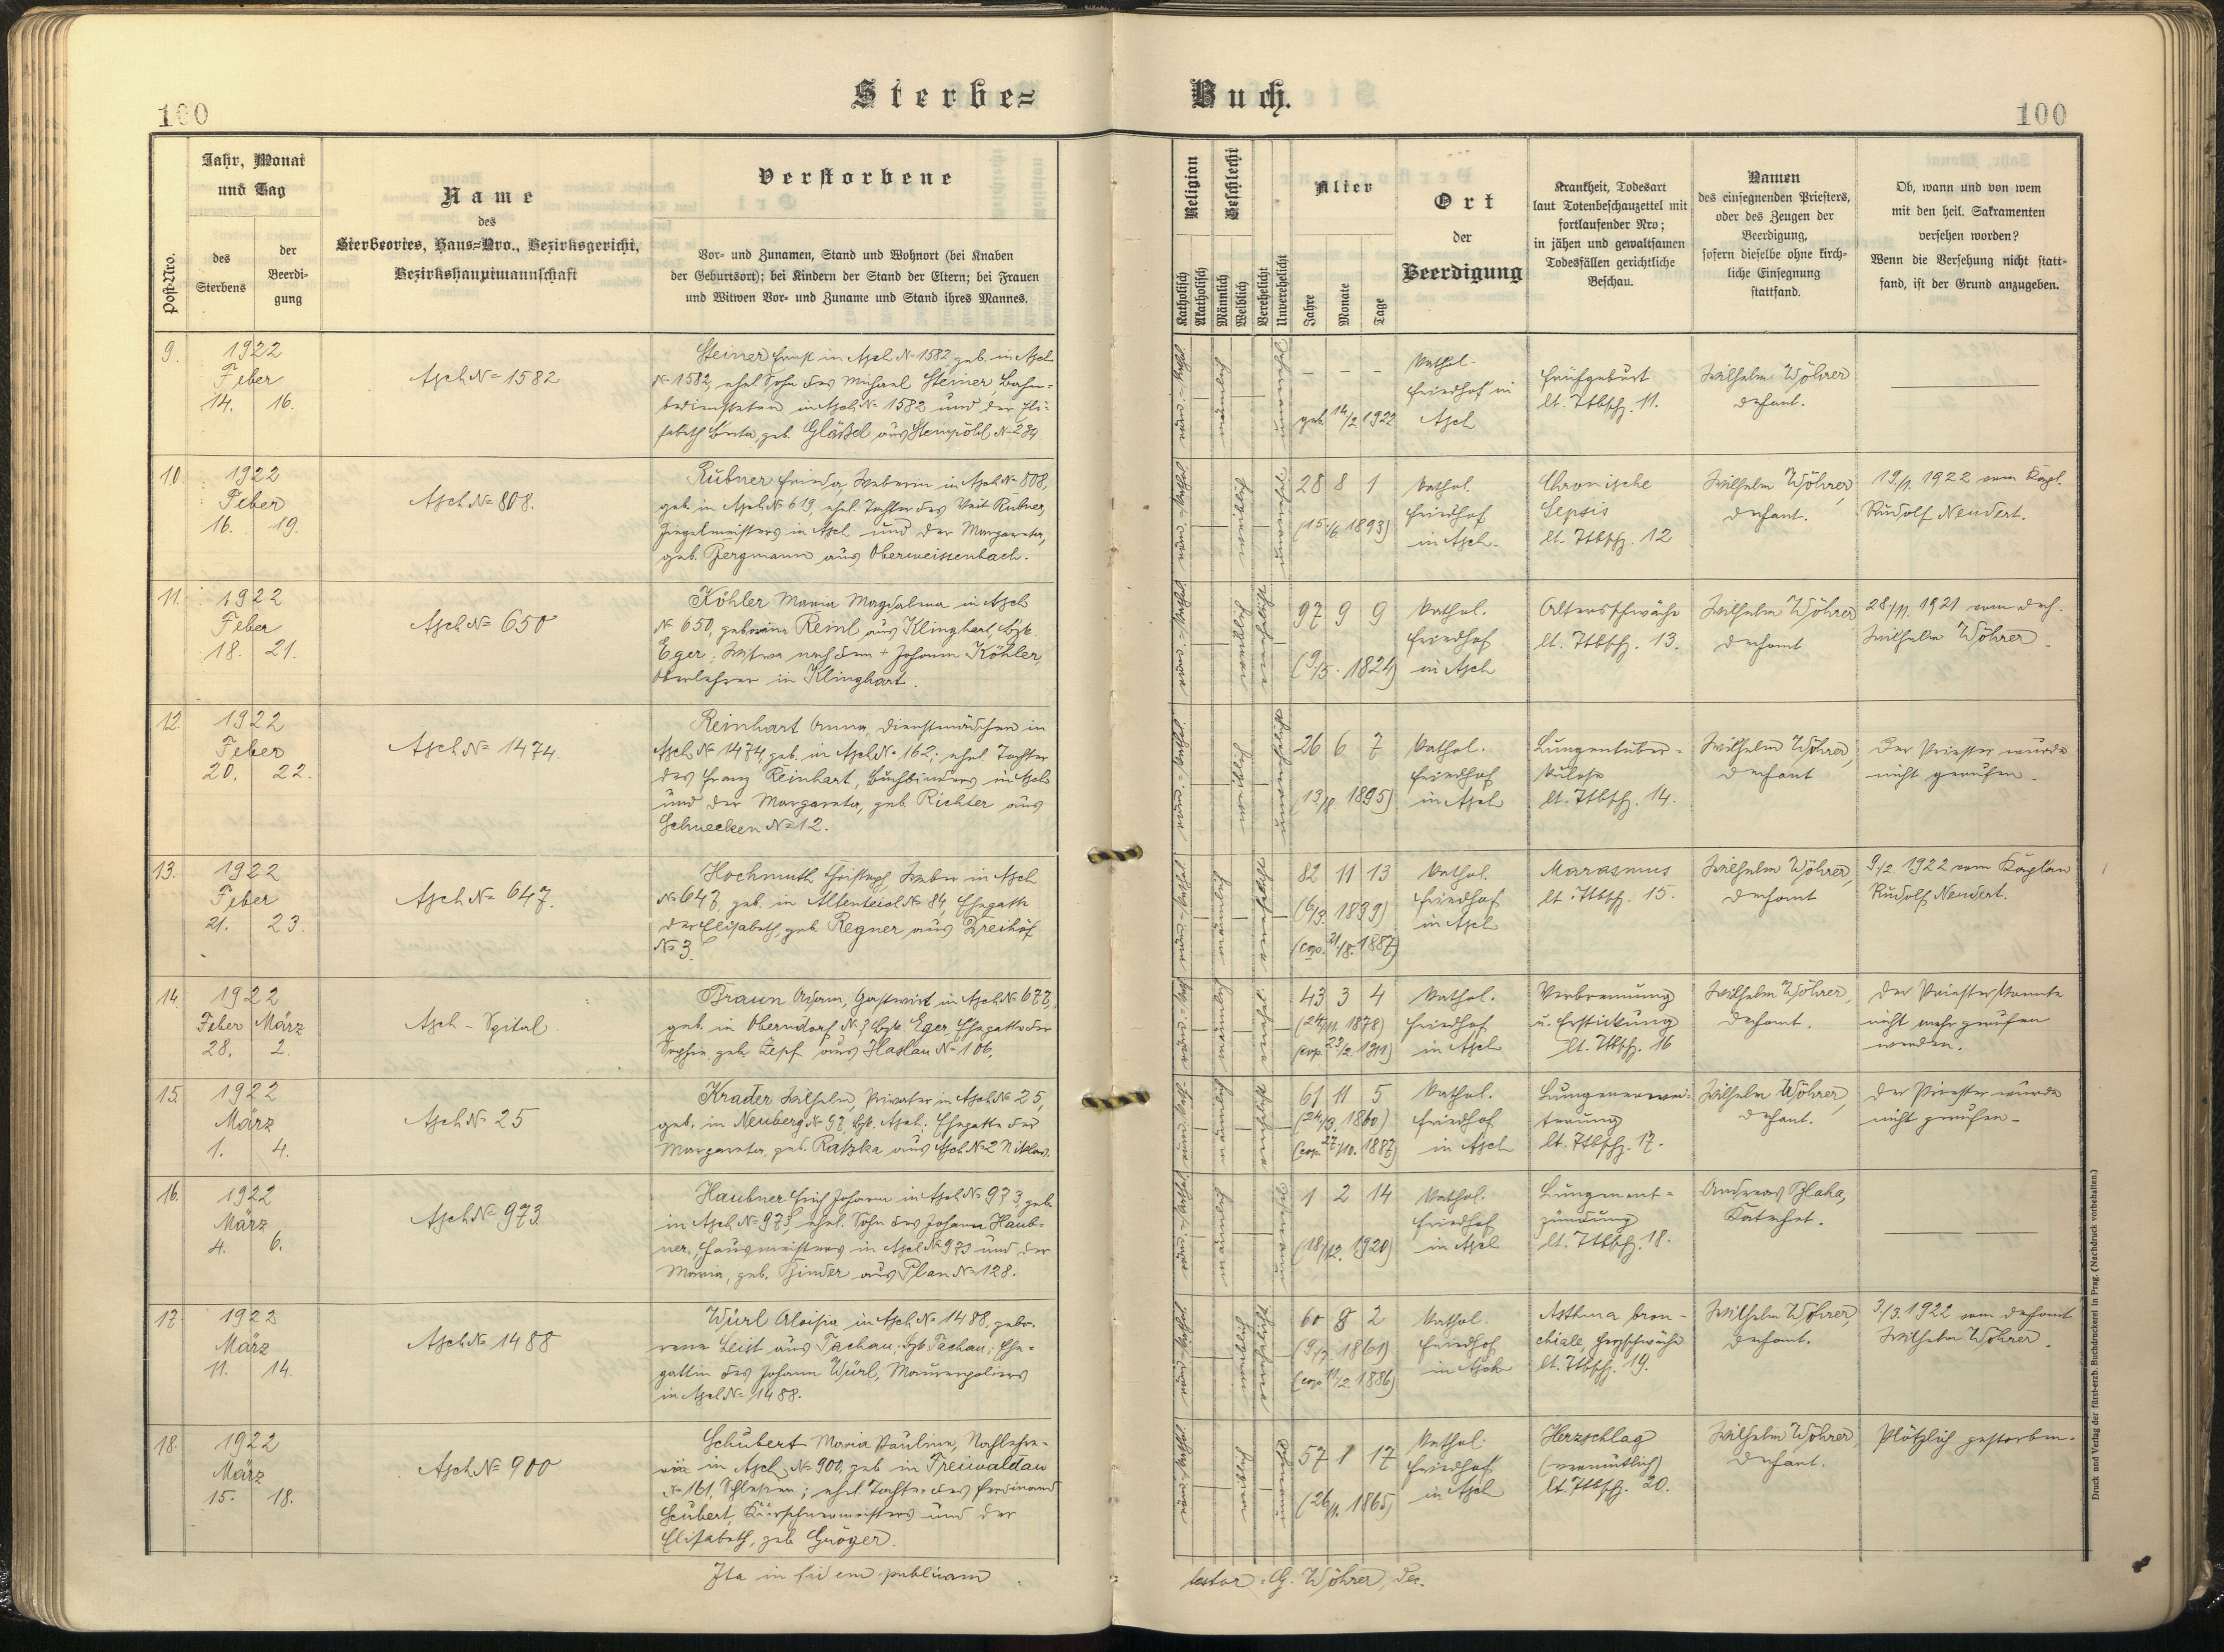 100
Sterbe=
Buch.
100
Post-Nro.
Jahr, Monat
und Tag
des
Sterbens
der
Beerdi-
gung
Name
des
Sterbeortes, Haus=Nro., Bezirksgericht,
Bezirkshauptmannschaft
Verstorbene
Vor- und Zunamen, Stand und Wohnort (bei Knaben
der Geburtsort); bei Kindern der Stand der Eltern; bei Frauen
und Witwen Vor- und Zuname und Stand ihres Mannes.
Religion
Katholisch
Akatholisch
Geschlecht
Männlich
Weiblich
Verehelicht
Unverehelicht
Alter
Jahre
Monate
Tage
Ort
der
Beerdigung
Krankheit, Todesart
laut Totenbeschauzettel mit
fortlaufender Nro;
in jähen und gewaltsamen
Todesfällen gerichtliche
Beschau.
Namen
des einsegnenden Priesters,
oder des Zeugen der
Beerdigung,
sofern dieselbe ohne kirch-
liche Einsegnung
stattfand.
Ob, wann und von wem
mit den heil. Sakramenten
versehen worden?
Wenn die Versehung nicht statt-
fand, ist der Grund anzugeben.
9.
1922
Feber
14. 16.
Asch No 1582
Steiner Ernst in Asch No 1582 geb. in Asch
No 1582, ehel. Sohn des Michael Steiner, Bahn-
bediensteten in Asch No 1582 und der Eli-
sabeth Berta, geb. Gläßel aus Steinpöhl No 289
– – –
geb. 14/2 1922
Kathol.
Friedhof in
Asch
Frühgeburt
lt. Ttbsch. 11.
Wilhelm Wöhrer
Dechant.
10.
1922
Feber
16. 19.
Asch No 808.
Rubner Frieda, Weberin in Asch No 808,
geb. in Asch No 619, ehel. Tochter des Veit Rubner,
Ziegelmeisters in Asch und der Margareta,
geb. Bergmann aus Oberweissenbach.
28 8 1
(15./6. 1893)
Kathol.
Friedhof
in Asch.
Chronische
Sepsis
lt. Ttbsch. 12
Wilhelm Wöhrer,
Dechant.
19/1. 1922 vom Kapl.
Rudolf Neudert.
11.
1922
Feber
18. 21.
Asch No 650
Köhler Maria Magdalena in Asch
No 650, geborene Reinl aus Klinghart, Bzk.
Eger; Witwe nach dem + Johann Köhler,
Oberlehrer in Klinghart.
97 9 9
(9/5. 1824)
Kathol.
Friedhof
in Asch
Altersschwäche
lt. Ttbsch. 13.
Wilhelm Wöhrer
Dechant
28/11. 1921 vom Dech.
Wilhelm Wöhrer.
12.
1922
Feber
20. 22.
Asch No 1474.
Reinhart Anna, Dienstmädchen in
Asch No 1474, geb. in Asch No 162; ehel. Tochter
des Franz Reinhart, Buchbinders in Asch
und der Margareta, geb. Richter aus
Schnecken No 12.
26 6 7
(13/8. 1895)
Kathol.
Friedhof
in Asch
Lungentuber-
kulose
lt. Ttbsch. 14.
Wilhelm Wöhrer,
Dechant
Der Priester wurde
nicht gerufen.
13.
1922
Feber
21. 23.
Asch No 647.
Hochmuth Christoph, Weber in Asch
No 647, geb. in Altenteich No 84, Ehegatte
der Elisabeth, geb. Regner aus Dreihöf
No 3.
82 11 13
(6/3. 1839)
(cop. 21./8. 1887)
Kathol.
Friedhof
in Asch
Marasmus
lt. Ttbsch. 15.
Wilhelm Wöhrer,
Dechant
9/2. 1922 vom Kaplan
Rudolf Neudert.
14.
1922
Feber März
28. 2.
Asch - Spital.
Braun Adam, Gastwirt in Asch No 677,
geb. in Oberndorf No 3 Bzk. Eger, Ehegatte der
Sophie, geb. Zepf aus Haslau No 106.
43 3 4
(24/11. 1878)
(cop. 23/2. 1911)
Kathol.
Friedhof
in Asch
Verbrennung
u. Erstickung
lt. Ttbsch. 16
Wilhelm Wöhrer,
Dechant.
Der Priester konnte
nicht mehr gerufen
werden.
15.
1922
März
1. 4.
Asch No 25
Krader Wilhelm, Privater in Asch No 25,
geb. in Neuberg No 97, Bzk. Asch. Ehegatte der
Margareta, geb. Ratzka aus Asch No 2 Niklas.
61 11 5
(24/3. 1860)
(cop. 27/10. 1887)
Kathol.
Friedhof
in Asch
Lungenerwei-
terung
lt. Ttbsch. 17.
Wilhelm Wöhrer,
Dechant.
Der Priester wurde
nicht gerufen.
16.
1922
März
4. 6.
Asch No 973
Haubner Erich Johann in Asch No 973, geb.
in Asch No 973, ehel. Sohn des Johann Haub-
ner, Hausmeisters in Asch No 973 und der
Maria, geb. Binder aus Plan No 128.
1 2 14
(18/12. 1920)
Kathol.
Friedhof
in Asch
Lungenent-
zündung
lt. Ttbsch. 18.
Andreas Blaha,
Katechet.
17.
1922
März
11. 14.
Asch No 1488
Würl Aloisia in Asch No 1488, gebo-
rene Leist aus Tachau, Bzk Tachau; Ehe-
gattin des Johann Würl, Maurerpoliers
in Asch No 1488.
60 8 2
(9/7. 1861)
(cop. 11/2. 1886)
Kathol.
Friedhof
in Asch
Asthma bron-
chiale, Herzschwäche
lt. Ttbsch. 19.
Wilhelm Wöhrer,
Dechant.
3/3. 1922 vom Dechant
Wilhelm Wöhrer.
18.
1922
März
15. 18.
Asch No 900
Schubert Maria Pauline,
in Asch No 900, geb. in Freiwaldau
No 161, Schlesien; ehel. Tochter des Ferdinand
Schubert, Kürschnermeisters und der
Elisabeth, geb. Gröger.
57 1 17
(26/1. 1865)
Kathol.
Friedhof
in Asch
Herzschlag
(vermutlich)
lt. Ttbsch. 20.
Wilhelm Wöhrer,
Dechant.
Plötzlich gestorben.
Ita in fidem publicam
testor: G. Wöhrer, Dec.
Druck und Verlag der fürst-erzb. Buchdruckerei in Prag. (Nachdruck vorbehalten.)